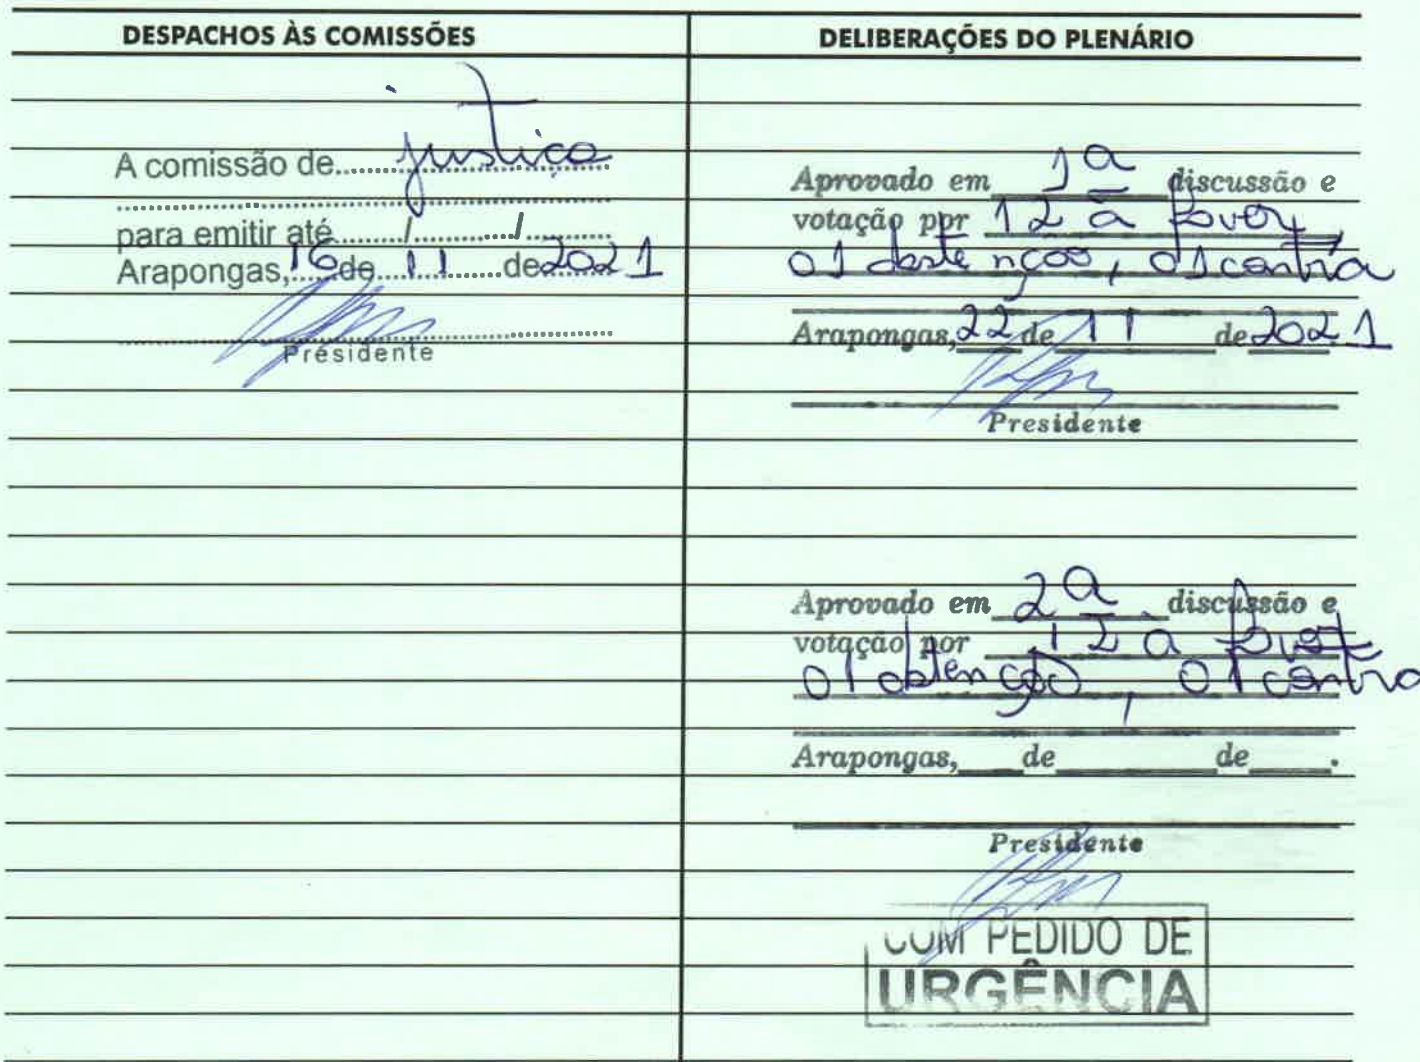 DESPACHOS ÀS COMISSÕES
A comissão de justiça
para emitir até / /
Arapongas, 16 de 11 de 2021
Presidente
DELIBERAÇÕES DO PLENÁRIO
Aprovado em 1ª discussão e
votação por 12 à favor,
01 , 01 contra
Arapongas, 22 de 11 de 2021
Presidente
Aprovado em 2ª discussão e
votação por 12 à favor
01 , 01 contra
Arapongas, de de .
Presidente
COM PEDIDO DE
URGÊNCIA